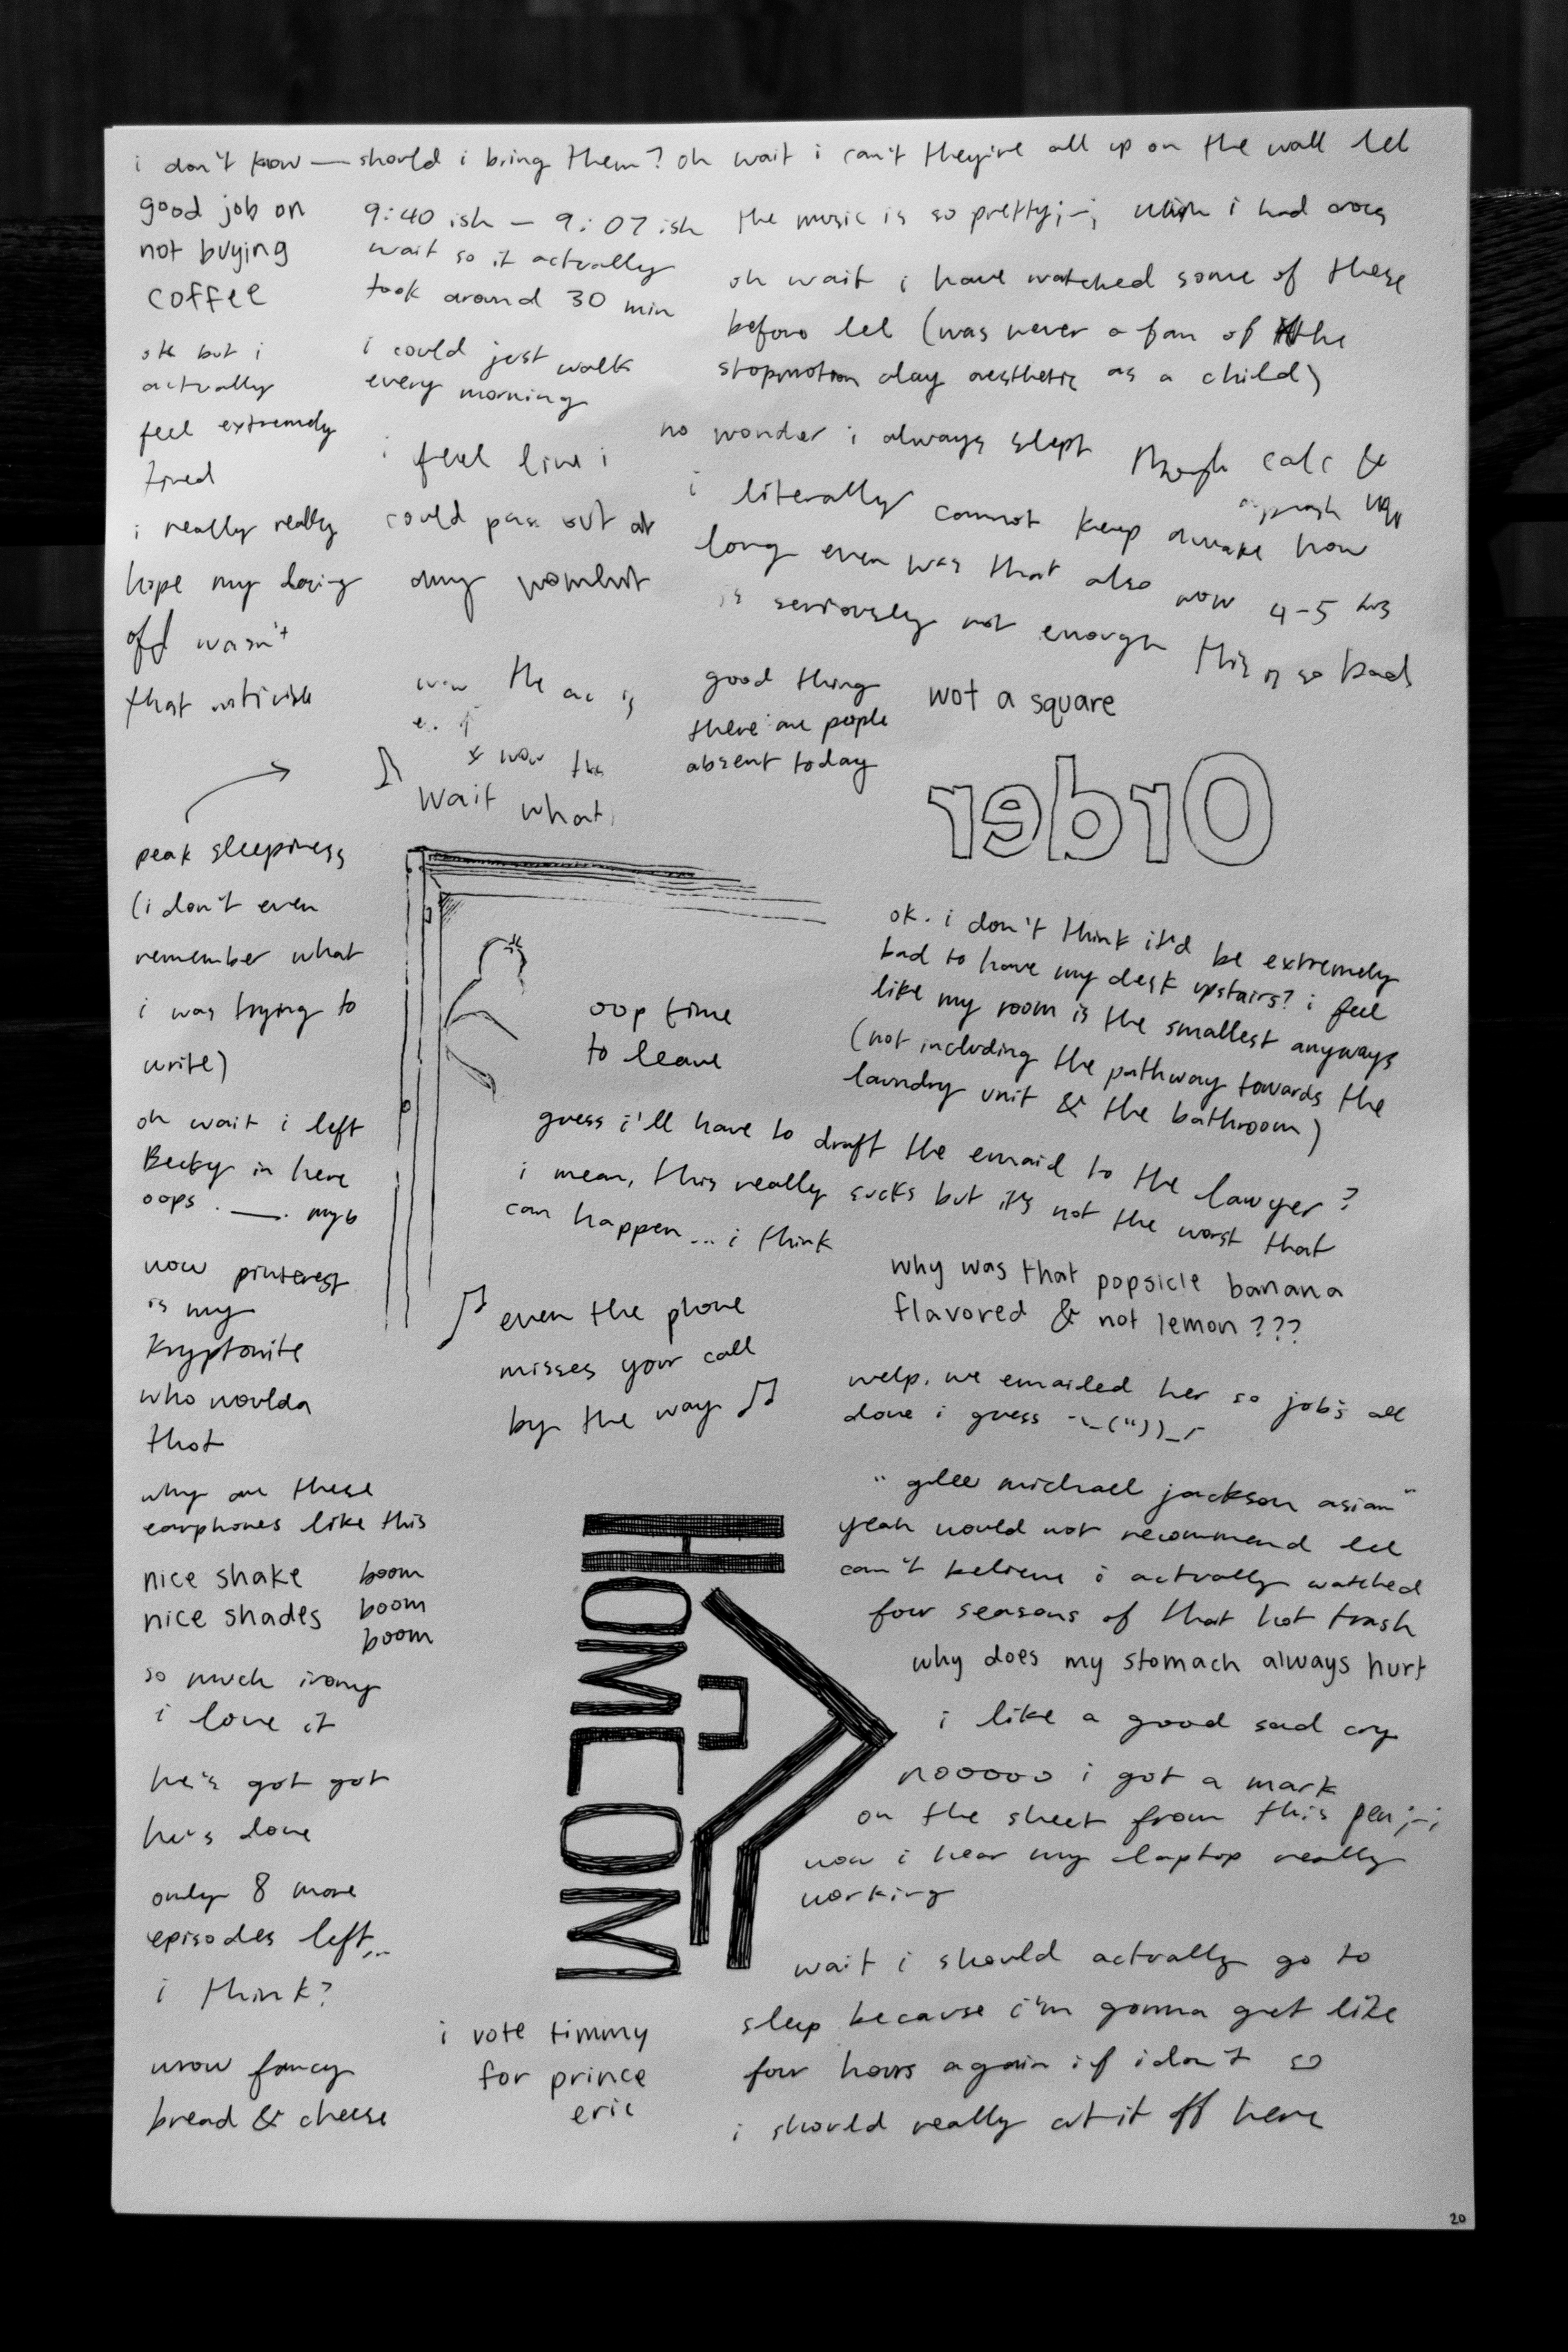 i don't know — should i bring them? oh wait i can't they're all up on the wall lol
good job on
not buying
coffee
ok but i
actually
feel extremely
tired
i really really
hope my dozing
off wasn't
that noticible
9:40 ish — 9:07 ish
wait so it actually
took around 30 min
i could just walk
every morning
i feel like i
could pass out at
any moment
the ac is
now the
wait what
the music is so pretty ;-; wish i had
oh wait i have watched some of these
before lol (was never a fan of the
stopmotion clay aesthetic as a child)
no wonder i always slept through calc &
i literally cannot keep awake how
long even was that also wow 4-5 hrs
is seriously not enough this is so bad
good thing
there are people
absent today
wot a square
Order
peak sleepiness
(i don't even
remember what
i was trying to
write)
oh wait i left
Becky in here
oops .__. my b
now pinterest
is my
kryptonite
who woulda
thot
why are these
earphones like this
nice shake
nice shades
boom
boom
boom
so much irony
i love it
he's got got
he's done
only 8 more
episodes left...
i think?
wow fancy
bread & cheese
oop time
to leave
ok. i don't think it'd be extremely
bad to have my desk upstairs? i feel
like my room is the smallest anyways
(not including the pathway towards the
laundry unit & the bathroom)
guess i'll have to draft the email to the lawyer?
i mean, this really sucks but it's not the worst that
can happen... i think
why was that popsicle banana
flavored & not lemon???
♫ even the phone
misses your call
by the way ♫
welp. we emailed her so job's all
done i guess ¯\_("))_/¯
"glee michael jackson asian"
yeah would not recommend lol
can't believe i actually watched
four seasons of that hot trash
why does my stomach always hurt
i like a good sad cry
nooooo i got a mark
on the sheet from this pen ;-;
now i hear my laptop really
working
HOMECOM
wait i should actually go to
sleep because i'm gonna get like
four hours again if i don't so
i should really cut it off here
i vote timmy
for prince
eric
20